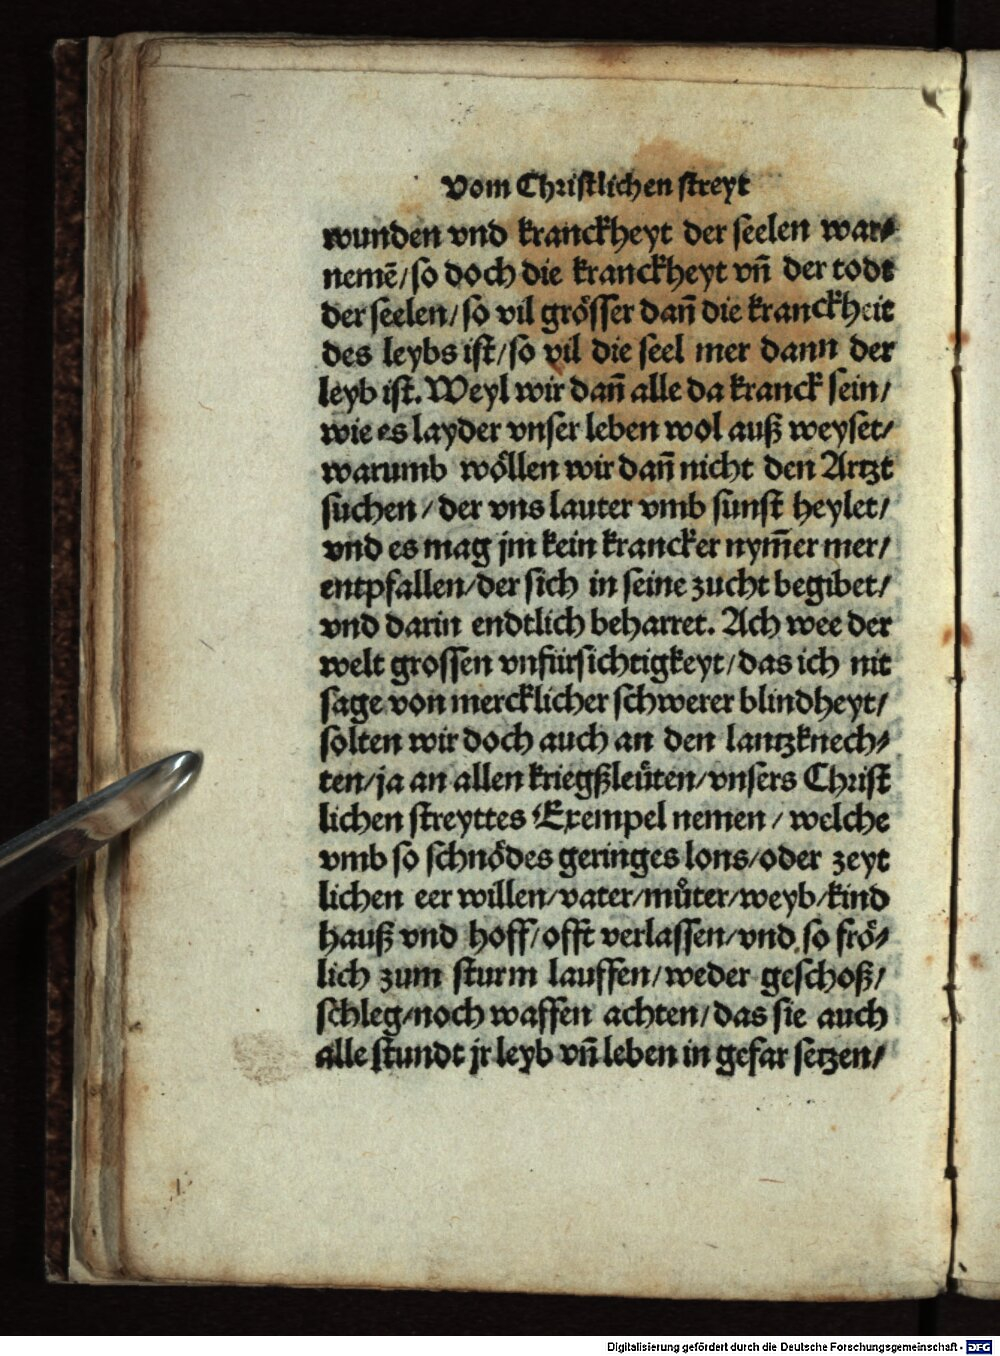 Vom Christlichen streyt
wunden vnd kranckheyt der seelen war⸗
nemẽ/so doch die kranckheyt vñ der todt
der seelen/so vil grösser dañ die kranckheit
des leybs ist/so vil die seel mer dann der
leyb ist. Weyl wir dañ alle da kranck sein/
wie es layder vnser leben wol auß weyset/
warumb wöllen wir dañ nicht den Artzt
suchen/der vns lauter vmb sunst heylet/
vnd es mag jm kein krancker nym̃er mer/
entpfallen/der sich in seine zucht begibet/
vnd darin endtlich beharret. Ach wee der
welt grossen vnfürsichtigkeyt/das ich nit
sage von mercklicher schwerer blindheyt/
solten wir doch auch an den lantzknech⸗
ten/ja an allen kriegßleüten/vnsers Christ
lichen streyttes Exempel nemen/welche
vmb so schnödes geringes lons/oder zeyt
lichen eer willen/vater/můter/weyb/kind
hauß vnd hoff/offt verlassen/vnd so frö⸗
lich zum sturm lauffen/weder geschoß/
schleg/noch waffen achten/das sie auch
alle stundt jr leyb vñ leben in gefar setzen/
Digitalisierung gefördert durch die Deutsche Forschungsgemeinschaft - DFG